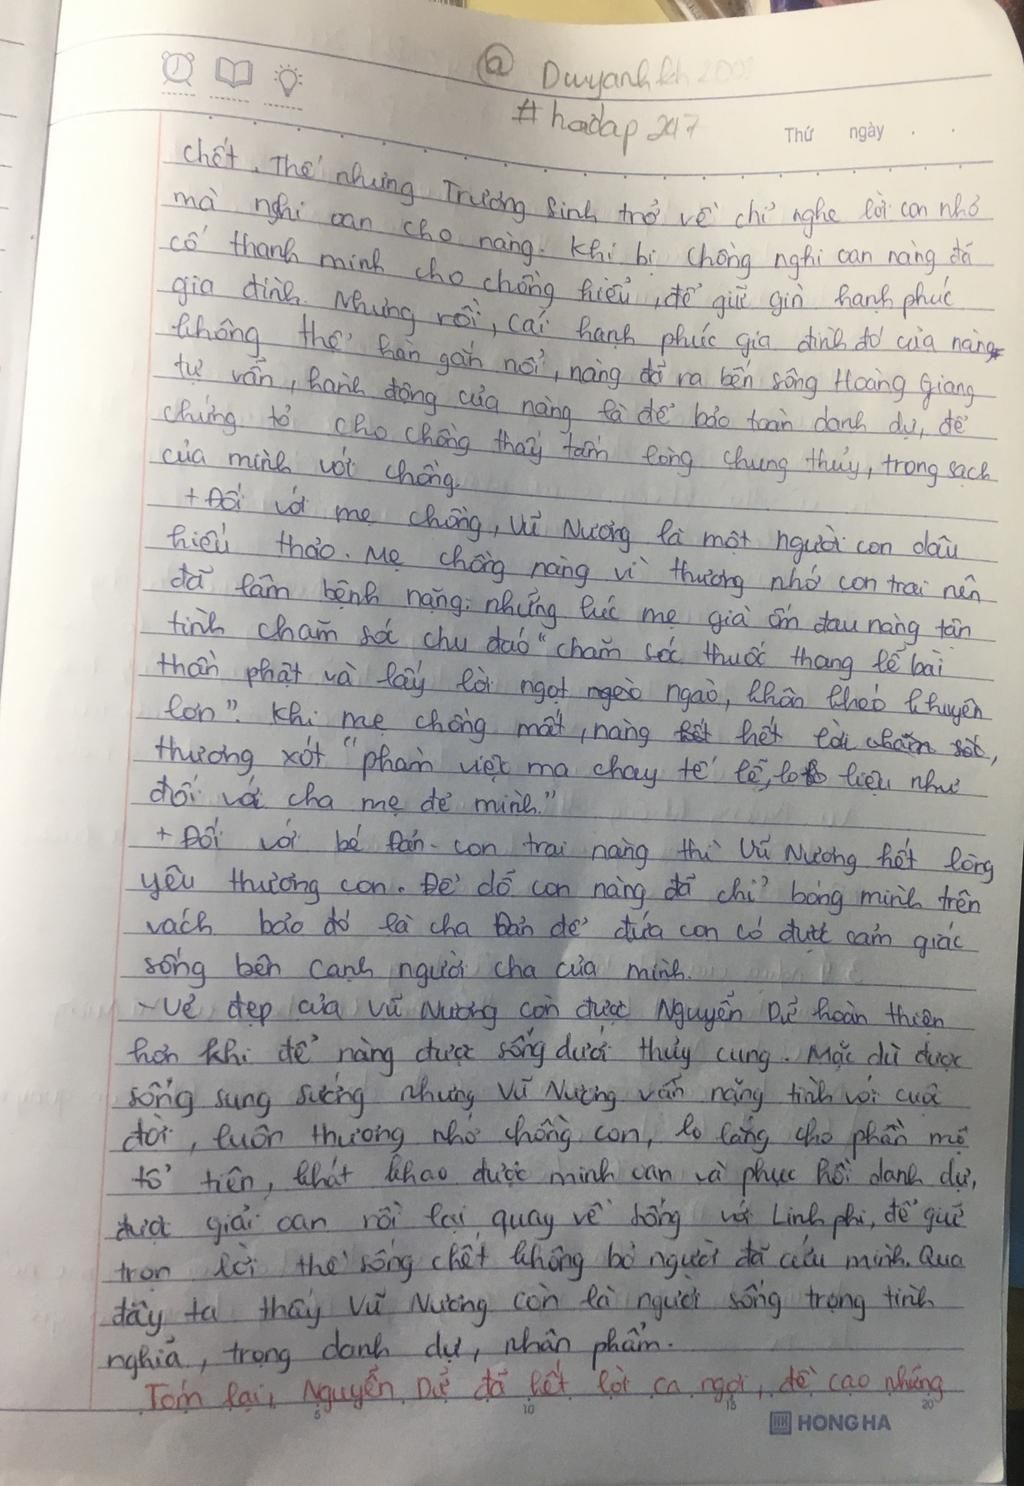 @ Duyanhkh2008
#hoidap247
Thứ ngày . .
chết. Thế nhưng Trương Sinh trở về chỉ nghe lời con nhỏ
mà nghi oan cho nàng. Khi bị chồng nghi oan nàng đã
cố thanh minh cho chồng hiểu, để giữ gìn hạnh phúc
gia đình. Nhưng rồi, cái hạnh phúc gia đình đó của nàng
không thể hàn gắn nổi, nàng đã ra bến sông Hoàng Giang
tự vẫn, hành động của nàng là để bảo toàn danh dự, để
chứng tỏ cho chồng thấy tấm lòng chung thủy, trong sạch
của mình với chồng.
+ Đối với mẹ chồng, Vũ Nương là một người con dâu
hiếu thảo. Mẹ chồng nàng vì thương nhớ con trai nên
đã lâm bệnh nặng. những lúc mẹ già ốm đau nàng tận
tình chăm sóc chu đáo "chăm sóc thuốc thang lễ bái
thần phật và lấy lời ngọt ngào, khôn khéo khuyên
lơn". Khi mẹ chồng mất, nàng hết lời
thương xót "phàm việc ma chay tế lễ, lo liệu như
đối với cha mẹ đẻ mình."
+ Đối với bé Đản- con trai nàng thì Vũ Nương hết lòng
yêu thương con. Để dỗ con nàng đã chỉ bóng mình trên
vách bảo đó là cha Đản để đứa con có được cảm giác
sống bên cạnh người cha của mình.
- Vẻ đẹp của Vũ Nương còn được Nguyễn Dữ hoàn thiện
hơn khi để nàng được sống dưới thủy cung. Mặc dù được
sống sung sướng nhưng Vũ Nương vẫn nặng tình với cuộc
đời, luôn thương nhớ chồng con, lo lắng cho phần mộ
tổ tiên, khát khao được minh oan và phục hồi danh dự,
được giải oan rồi lại quay về sống với Linh phi, để giữ
trọn lời thề sống chết không bỏ người đã cứu mình. Qua
đây ta thấy Vũ Nương còn là người sống trọng tình
nghĩa, trọng danh dự, nhân phẩm.
Tóm lại, Nguyễn Dữ đã hết lời ca ngợi, đề cao những
5 10 15 20
HONG HA